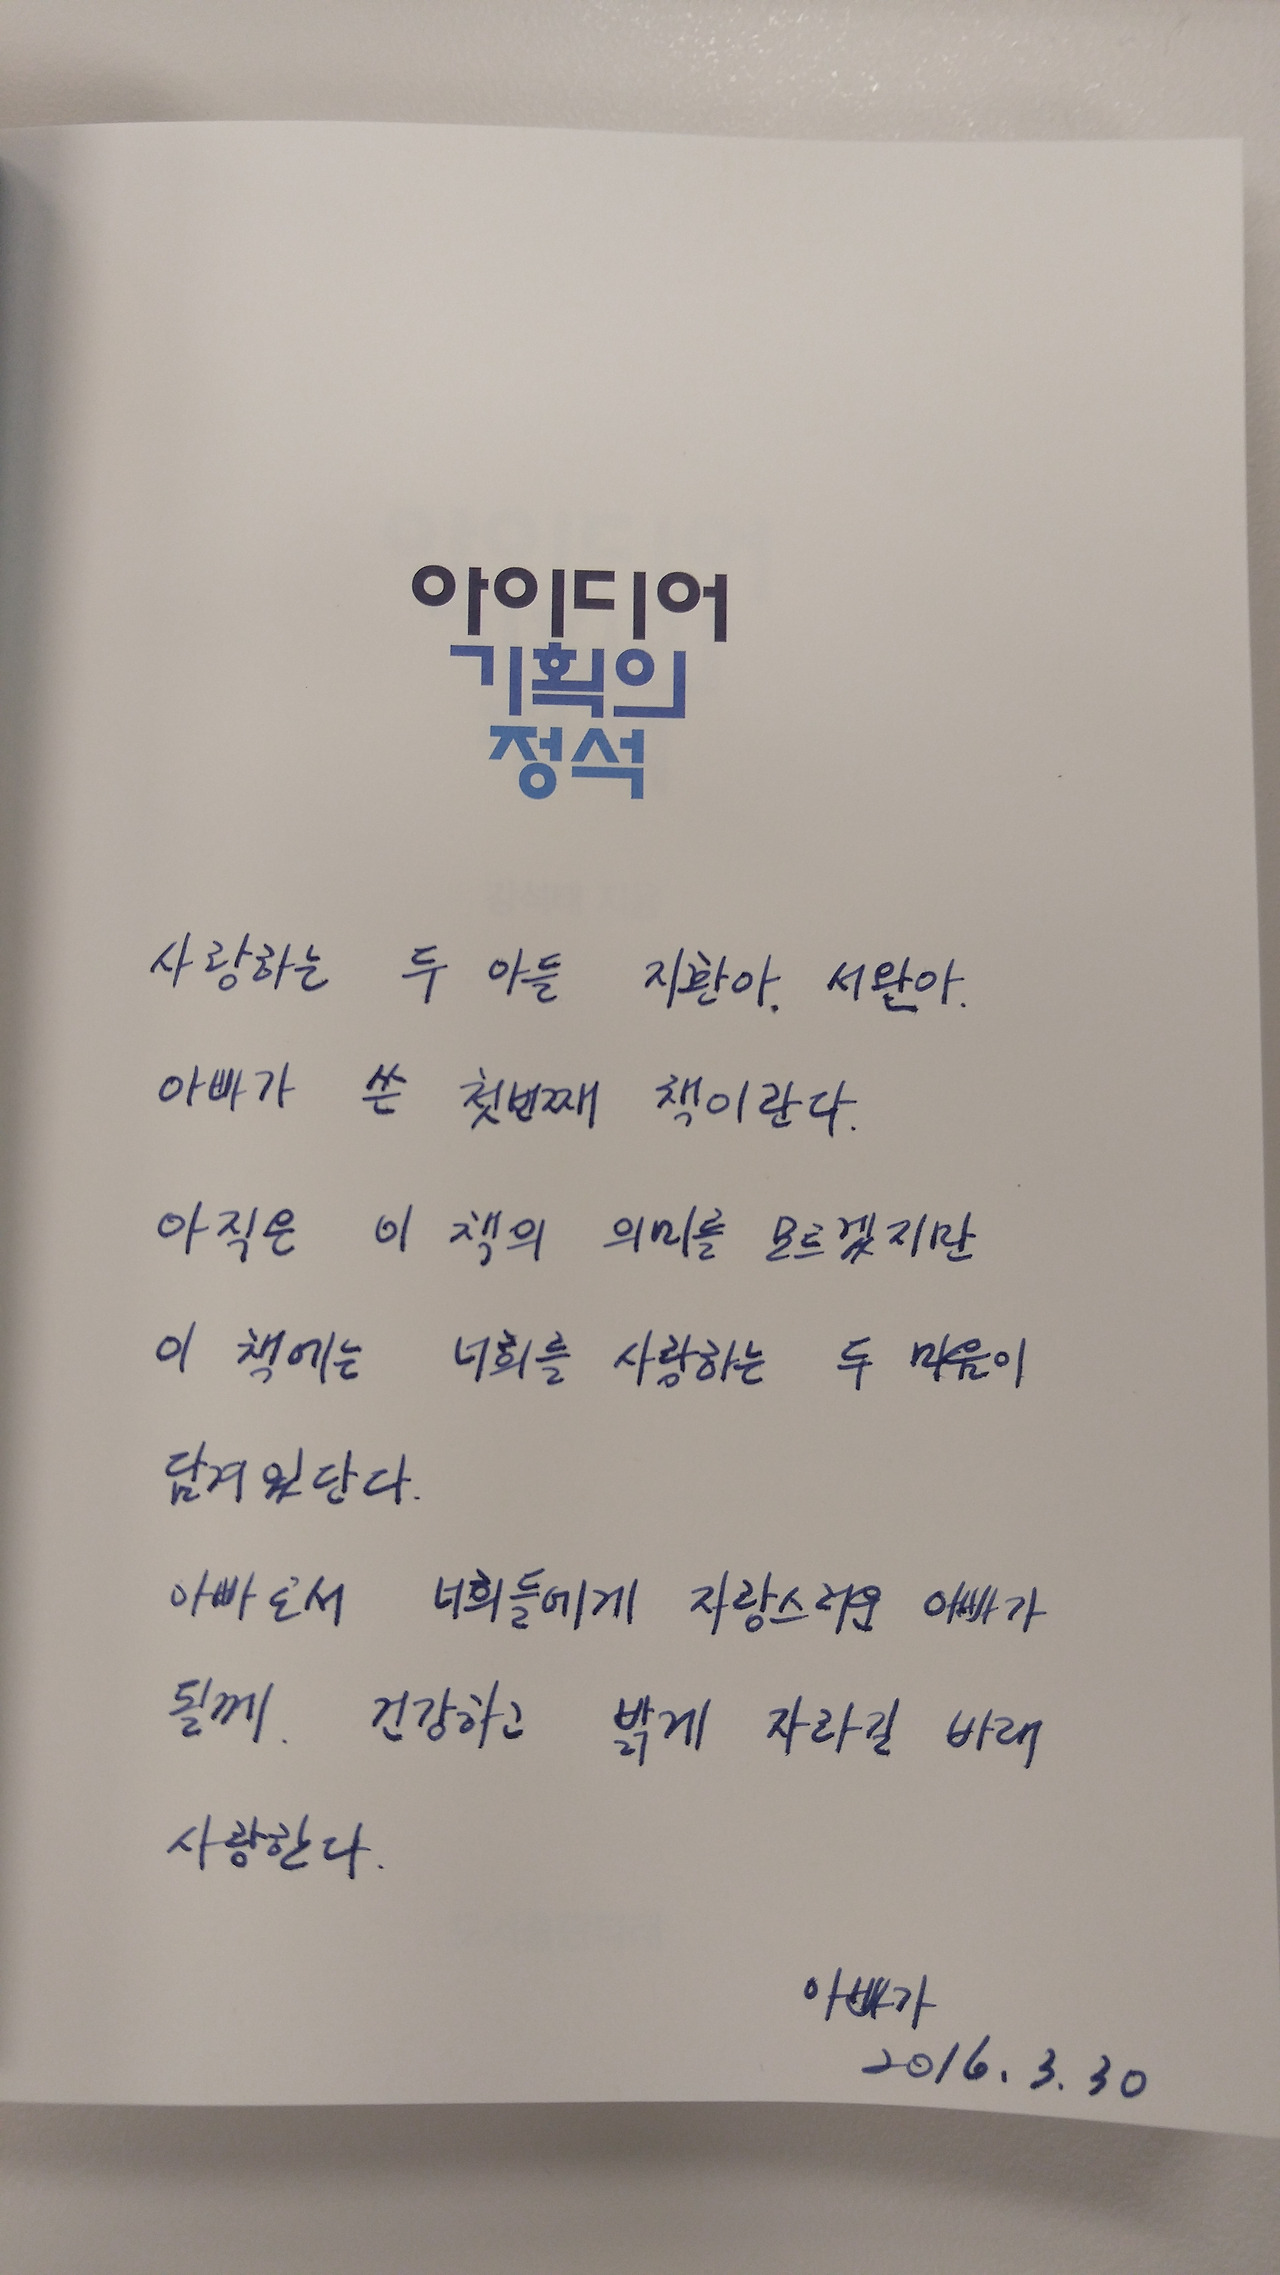 아이디어
기획의
정석
사랑하는 두 아들 지환아. 서완아.
아빠가 쓴 첫번째 책이란다.
아직은 이 책의 의미를 모르겠지만
이 책에는 너희를 사랑하는 두 마음이
담겨있단다.
아빠로서 너희들에게 자랑스러운 아빠가
될께. 건강하고 밝게 자라길 바래
사랑한다.
아빠가
2016. 3. 30